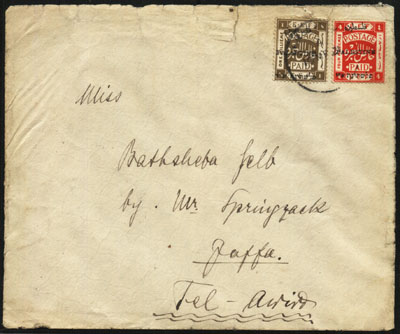 POSTAGE POSTAGE
PAID PAID
Miss
Bathsheba Gelb
by. Mr Springzack
Jaffa.
Tel-Aviv